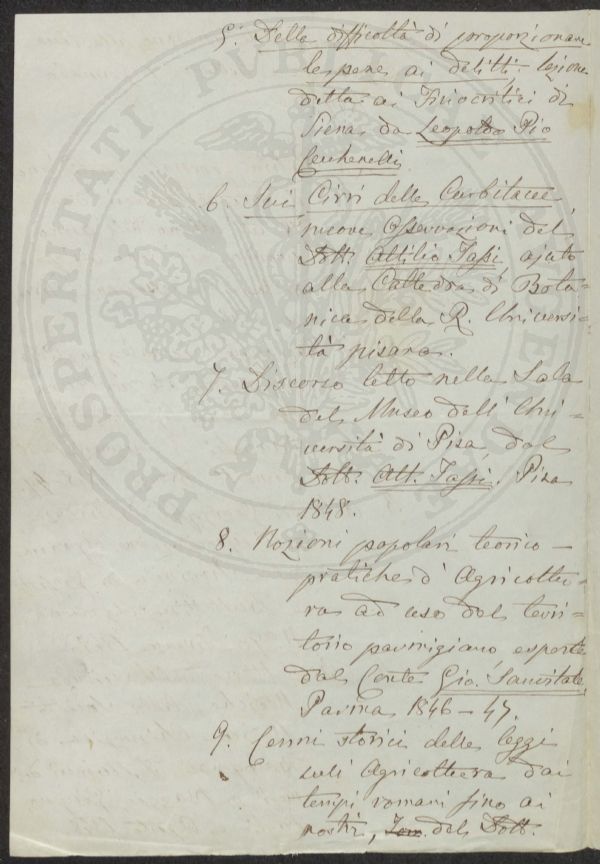 5. Della difficoltà di proporzionare
le pene ai delitti, lezione
detta ai Fisiocritici di
Siena da Leopoldo Pio
6. Sui Cirri delle Curbitacee
nuove Osservazioni del
Dott. Attilio Tassi, ajuto
alla Cattedra di Bota-
nica della R. Universi-
tà pisana.
7. Discorso letto nella Sala
del Museo dell' Uni-
versità di Pisa, dal
Dott. Att. Tassi. Pisa
1848.
8. Nozioni popolari teorico-
pratiche d' Agricoltu-
ra ad uso del terri-
torio parmigiano, esposte
dal Conte Gio. Sanvitale
Parma 1846-47.
9. Cenni storici delle leggi
sull Agricoltura dai
tempi romani fino ai
nostri, del Dott.
PROSPERITATI PUBLICAE